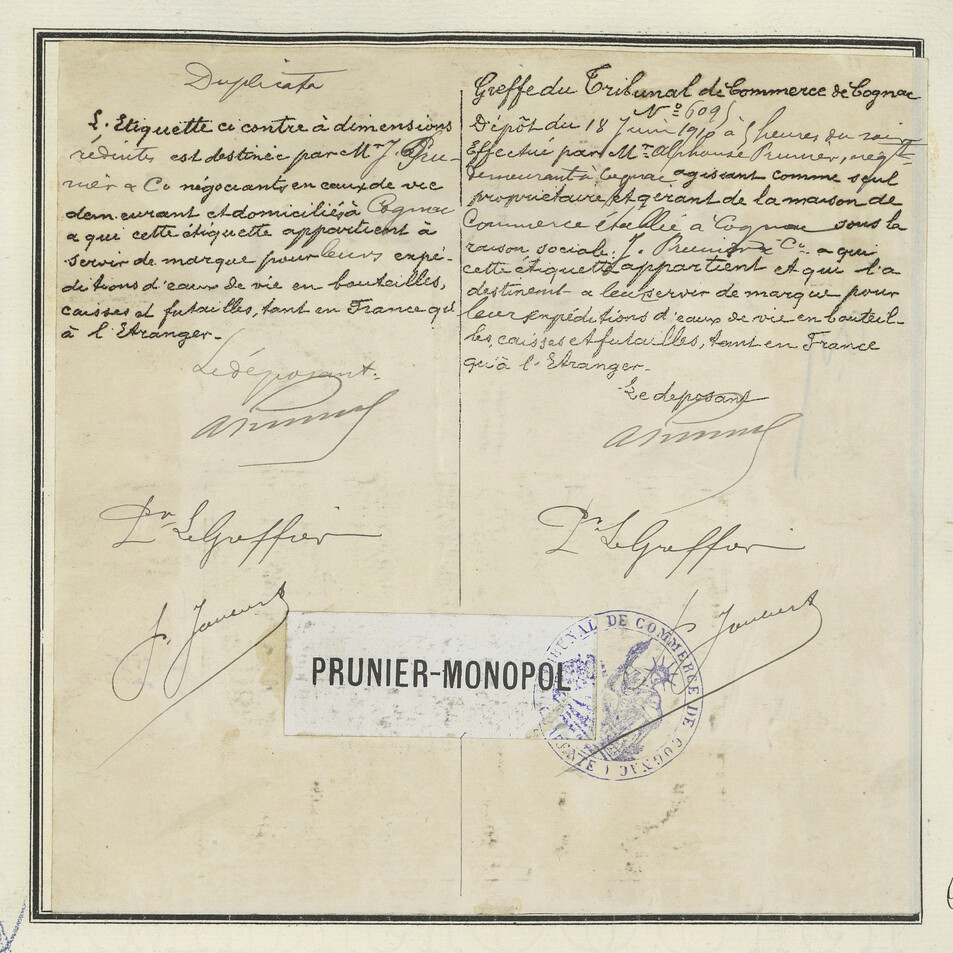 Duplicata
L'Etiquette ci contre à dimensions
réduites est destinée par Mr J. Pru-
nier & Co négociants en eaux de vie
demeurant et domiciliés à Cognac
a qui cette étiquette appartient à
servir de marque pour leurs expé-
ditions d'eaux de vie en bouteilles,
caisses et futailles, tant en France qu'
à l'Etranger.
Le déposant.
Pr Le Greffier
Greffe du Tribunal de Commerce de Cognac
N° 6095
Dépôt du 18 Juin 1910 à 5 heures du soir
Effectué par Mr. Alphonse Prunier, négt
demeurant à Cognac agissant comme seul
propriétaire et gérant de la maison de
Commerce établie à Cognac sous la
raison sociale: J. Prunier & Co. a qui
cette étiquette appartient et qui l'a
destinent a leur servir de marque pour
leur expéditions d'eaux de vie en bouteil-
les, caisses et futailles, tant en France
qu'à l'Etranger.
Le deposant
Pr Le Greffier
PRUNIER-MONOPOL
TRIBUNAL DE COMMERCE DE COGNAC